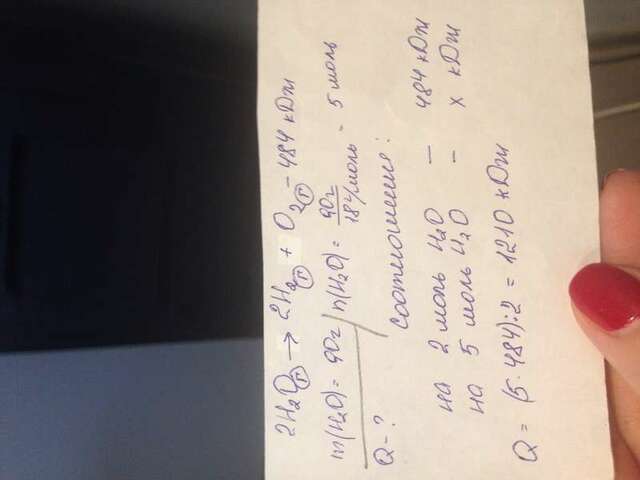 2H₂O(г) → 2H₂(г) + O₂(г) − 484 кДж
m(H₂O) = 90г n(H₂O) = 90г / 18г/моль = 5 моль
Q − ?
соотношение:
на 2 моль H₂O − 484 кДж
на 5 моль H₂O − x кДж
Q = (5·484):2 = 1210 кДж